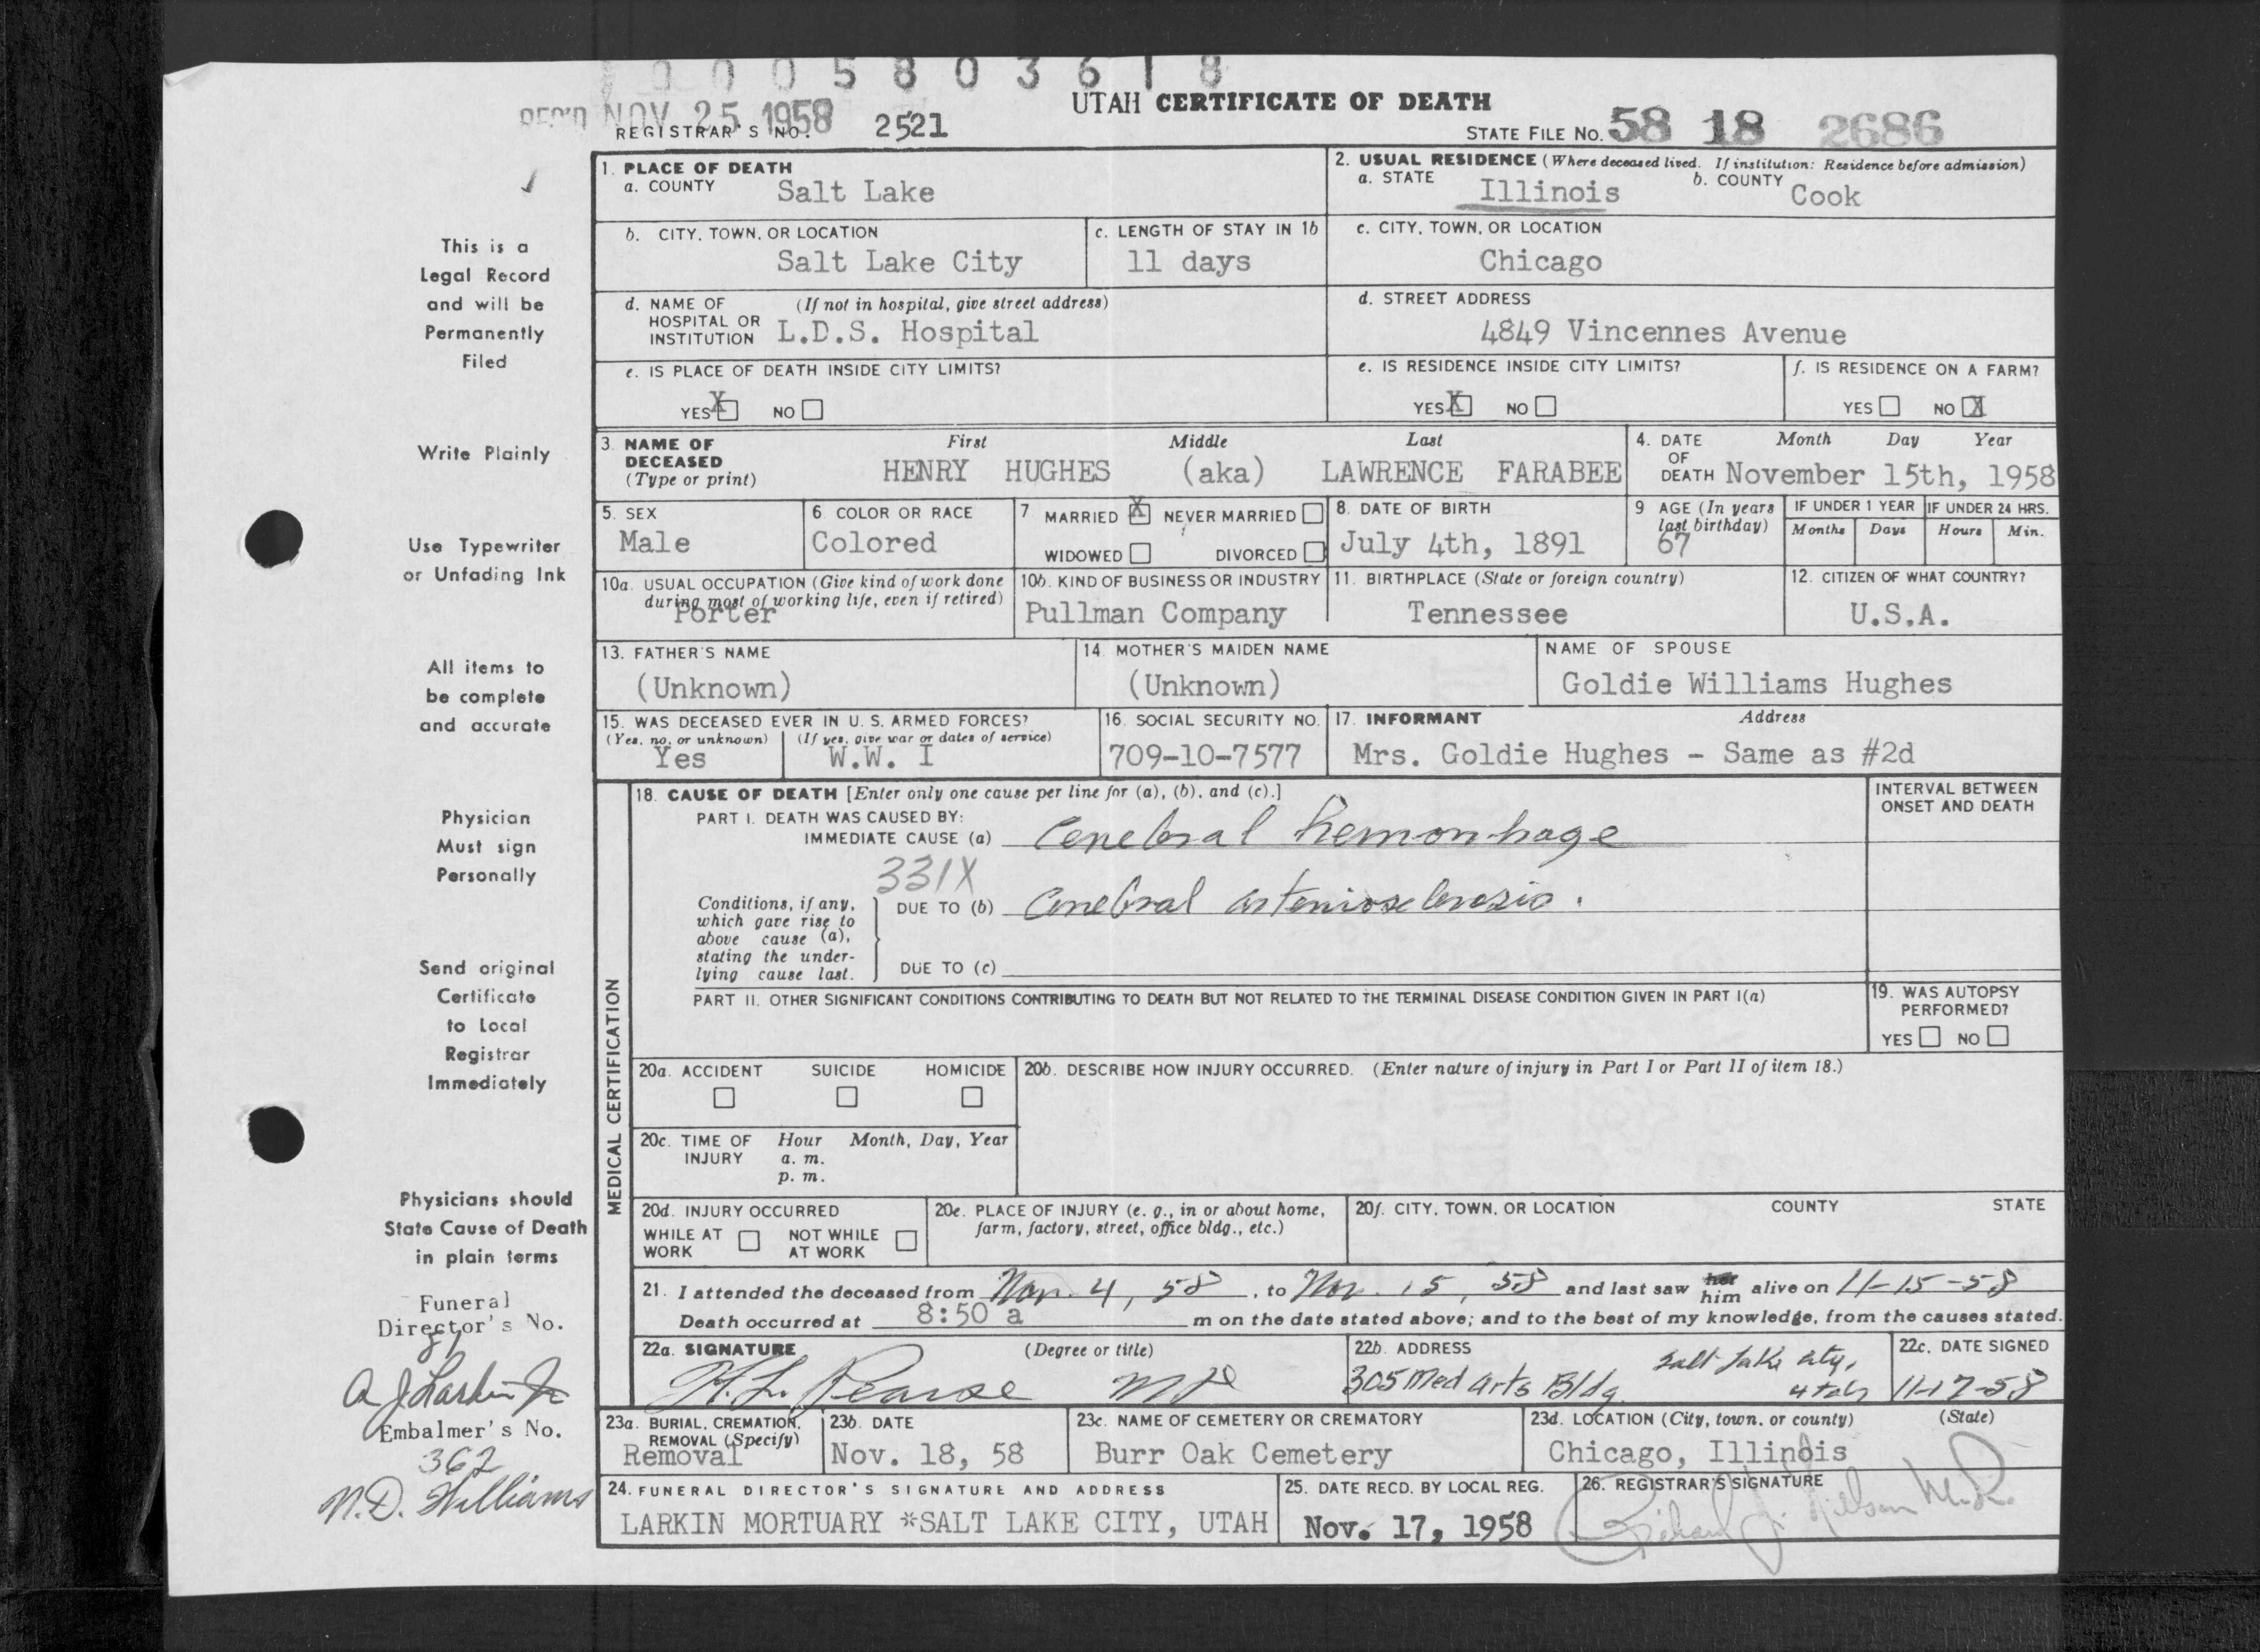 0 0 0 5 8 0 3 6 1 8
REC'D NOV 25 1958
UTAH CERTIFICATE OF DEATH
REGISTRAR'S NO. 2521
STATE FILE NO. 58 18 2686
1. PLACE OF DEATH
a. COUNTY Salt Lake
2. USUAL RESIDENCE (Where deceased lived. If institution: Residence before admission)
a. STATE Illinois b. COUNTY Cook
b. CITY, TOWN, OR LOCATION
Salt Lake City
c. LENGTH OF STAY IN 1b
11 days
c. CITY, TOWN, OR LOCATION
Chicago
d. NAME OF HOSPITAL OR INSTITUTION (If not in hospital, give street address)
L.D.S. Hospital
d. STREET ADDRESS
4849 Vincennes Avenue
e. IS PLACE OF DEATH INSIDE CITY LIMITS?
YES X NO
e. IS RESIDENCE INSIDE CITY LIMITS?
YES X NO
f. IS RESIDENCE ON A FARM?
YES NO X
3. NAME OF DECEASED (Type or print)
First Middle Last
HENRY HUGHES (aka) LAWRENCE FARABEE
4. DATE OF DEATH
Month Day Year
November 15th, 1958
5. SEX
Male
6. COLOR OR RACE
Colored
7. MARRIED X NEVER MARRIED
WIDOWED DIVORCED
8. DATE OF BIRTH
July 4th, 1891
9 AGE (In years last birthday)
67
IF UNDER 1 YEAR
Months Days
IF UNDER 24 HRS.
Hours Min.
10a. USUAL OCCUPATION (Give kind of work done during most of working life, even if retired)
Porter
10b. KIND OF BUSINESS OR INDUSTRY
Pullman Company
11. BIRTHPLACE (State or foreign country)
Tennessee
12. CITIZEN OF WHAT COUNTRY?
U.S.A.
13. FATHER'S NAME
(Unknown)
14. MOTHER'S MAIDEN NAME
(Unknown)
NAME OF SPOUSE
Goldie Williams Hughes
15. WAS DECEASED EVER IN U. S. ARMED FORCES?
(Yes, no, or unknown) (If yes, give war or dates of service)
Yes W.W. I
16. SOCIAL SECURITY NO.
709-10-7577
17. INFORMANT Address
Mrs. Goldie Hughes - Same as #2d
MEDICAL CERTIFICATION
18. CAUSE OF DEATH [Enter only one cause per line for (a), (b), and (c).]
INTERVAL BETWEEN ONSET AND DEATH
PART I. DEATH WAS CAUSED BY:
IMMEDIATE CAUSE (a) Cerebral hemorrhage
331X
Conditions, if any, which gave rise to above cause (a), stating the underlying cause last.
DUE TO (b) Cerebral arteriosclerosis.
DUE TO (c)
PART II. OTHER SIGNIFICANT CONDITIONS CONTRIBUTING TO DEATH BUT NOT RELATED TO THE TERMINAL DISEASE CONDITION GIVEN IN PART I(a)
19. WAS AUTOPSY PERFORMED?
YES NO
20a. ACCIDENT SUICIDE HOMICIDE
20b. DESCRIBE HOW INJURY OCCURRED. (Enter nature of injury in Part I or Part II of item 18.)
20c. TIME OF INJURY Hour Month, Day, Year
a. m.
p. m.
20d. INJURY OCCURRED
WHILE AT WORK NOT WHILE AT WORK
20e. PLACE OF INJURY (e. g., in or about home, farm, factory, street, office bldg., etc.)
20f. CITY, TOWN, OR LOCATION COUNTY STATE
21. I attended the deceased from Nov. 4, 58, to Nov. 15, 58 and last saw her him alive on 11-15-58
Death occurred at 8:50 a m on the date stated above; and to the best of my knowledge, from the causes stated.
22a. SIGNATURE (Degree or title)
H. L. Pearse MD
22b. ADDRESS
305 Med Arts Bldg Salt Lake City, Utah
22c. DATE SIGNED
11-17-58
23a. BURIAL, CREMATION, REMOVAL (Specify)
Removal
23b. DATE
Nov. 18, 58
23c. NAME OF CEMETERY OR CREMATORY
Burr Oak Cemetery
23d. LOCATION (City, town, or county) (State)
Chicago, Illinois
24. FUNERAL DIRECTOR'S SIGNATURE AND ADDRESS
LARKIN MORTUARY *SALT LAKE CITY, UTAH
25. DATE RECD. BY LOCAL REG.
Nov. 17, 1958
26. REGISTRAR'S SIGNATURE
Richard J. Nelson M.D.
This is a
Legal Record
and will be
Permanently
Filed
Write Plainly
Use Typewriter
or Unfading Ink
All items to
be complete
and accurate
Physician
Must sign
Personally
Send original
Certificate
to Local
Registrar
Immediately
Physicians should
State Cause of Death
in plain terms
Funeral
Director's No.
81
A J Larkin Jr
Embalmer's No.
362
N.D. Williams